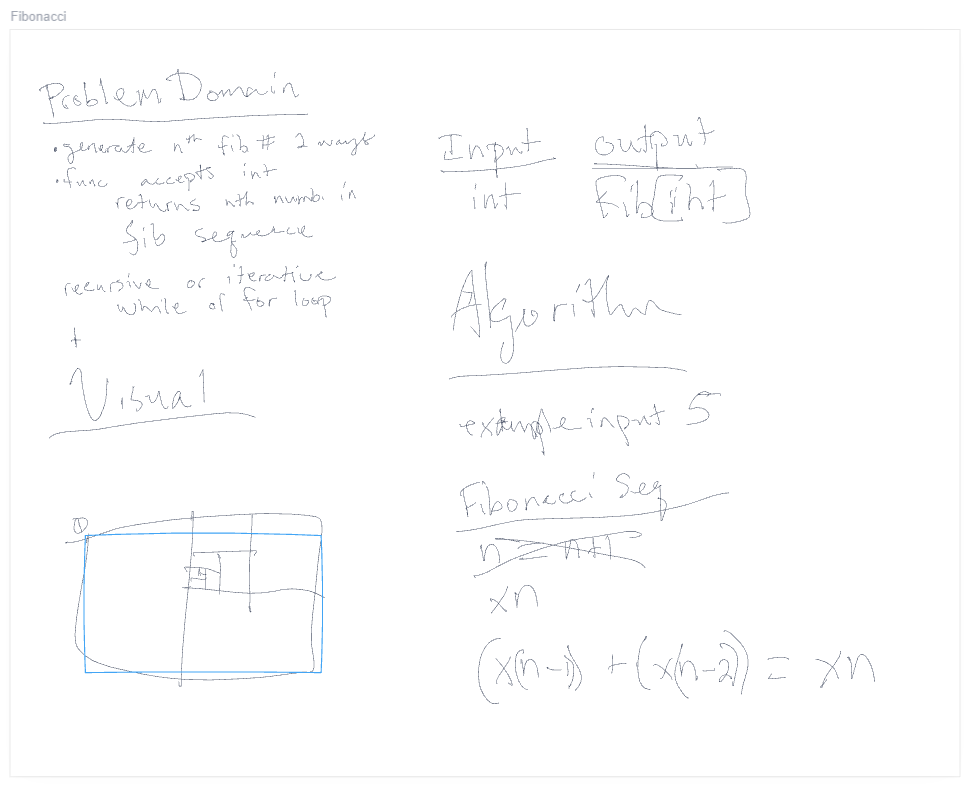 Fibonacci
Problem Domain
• generate nth fib # 2 ways
• func accepts int
returns nth numb. in
fib sequence
recursive or iterative
while of for loop
+
Visual
①
Input
int
output
Fib[int]
Algorithm
example input 5
Fibonacci Seq
n = n+1
xn
(x(n-1)) + (x(n-2)) = xn